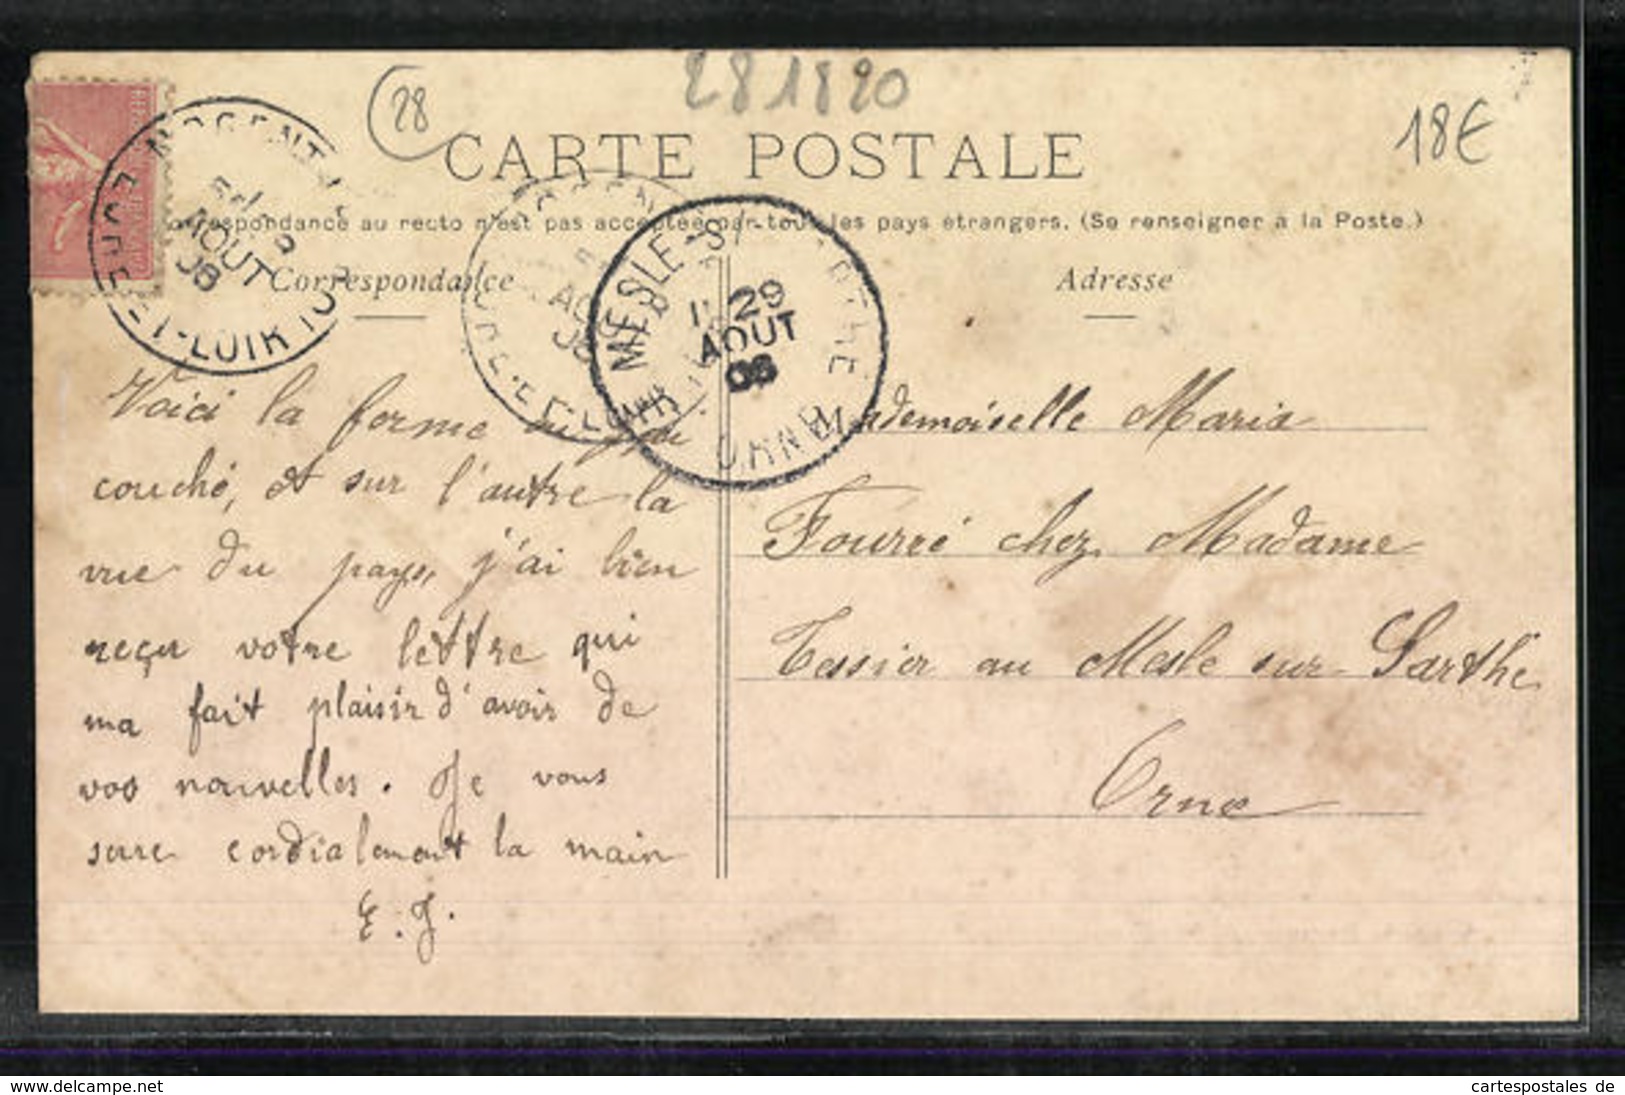 281820
28
18€
CARTE POSTALE
correspondance au recto n'est pas acceptée par tous les pays étrangers. (Se renseigner à la Poste.)
Correspondance
Adresse
NOGENT
AOUT
08
EURE-ET-LOIR
MESLE-S
29
AOUT
08
ORNE
Voici la ferme où j'ai
couché, et sur l'autre la
vue du pays, j'ai bien
reçu votre lettre qui
ma fait plaisir d'avoir de
vos nouvelles. Je vous
serre cordialement la main
E. J.
Mademoiselle Maria
Fourré chez Madame
Tessier au Mesle sur Sarthe
Orne
www.delcampe.net
cartespostales de